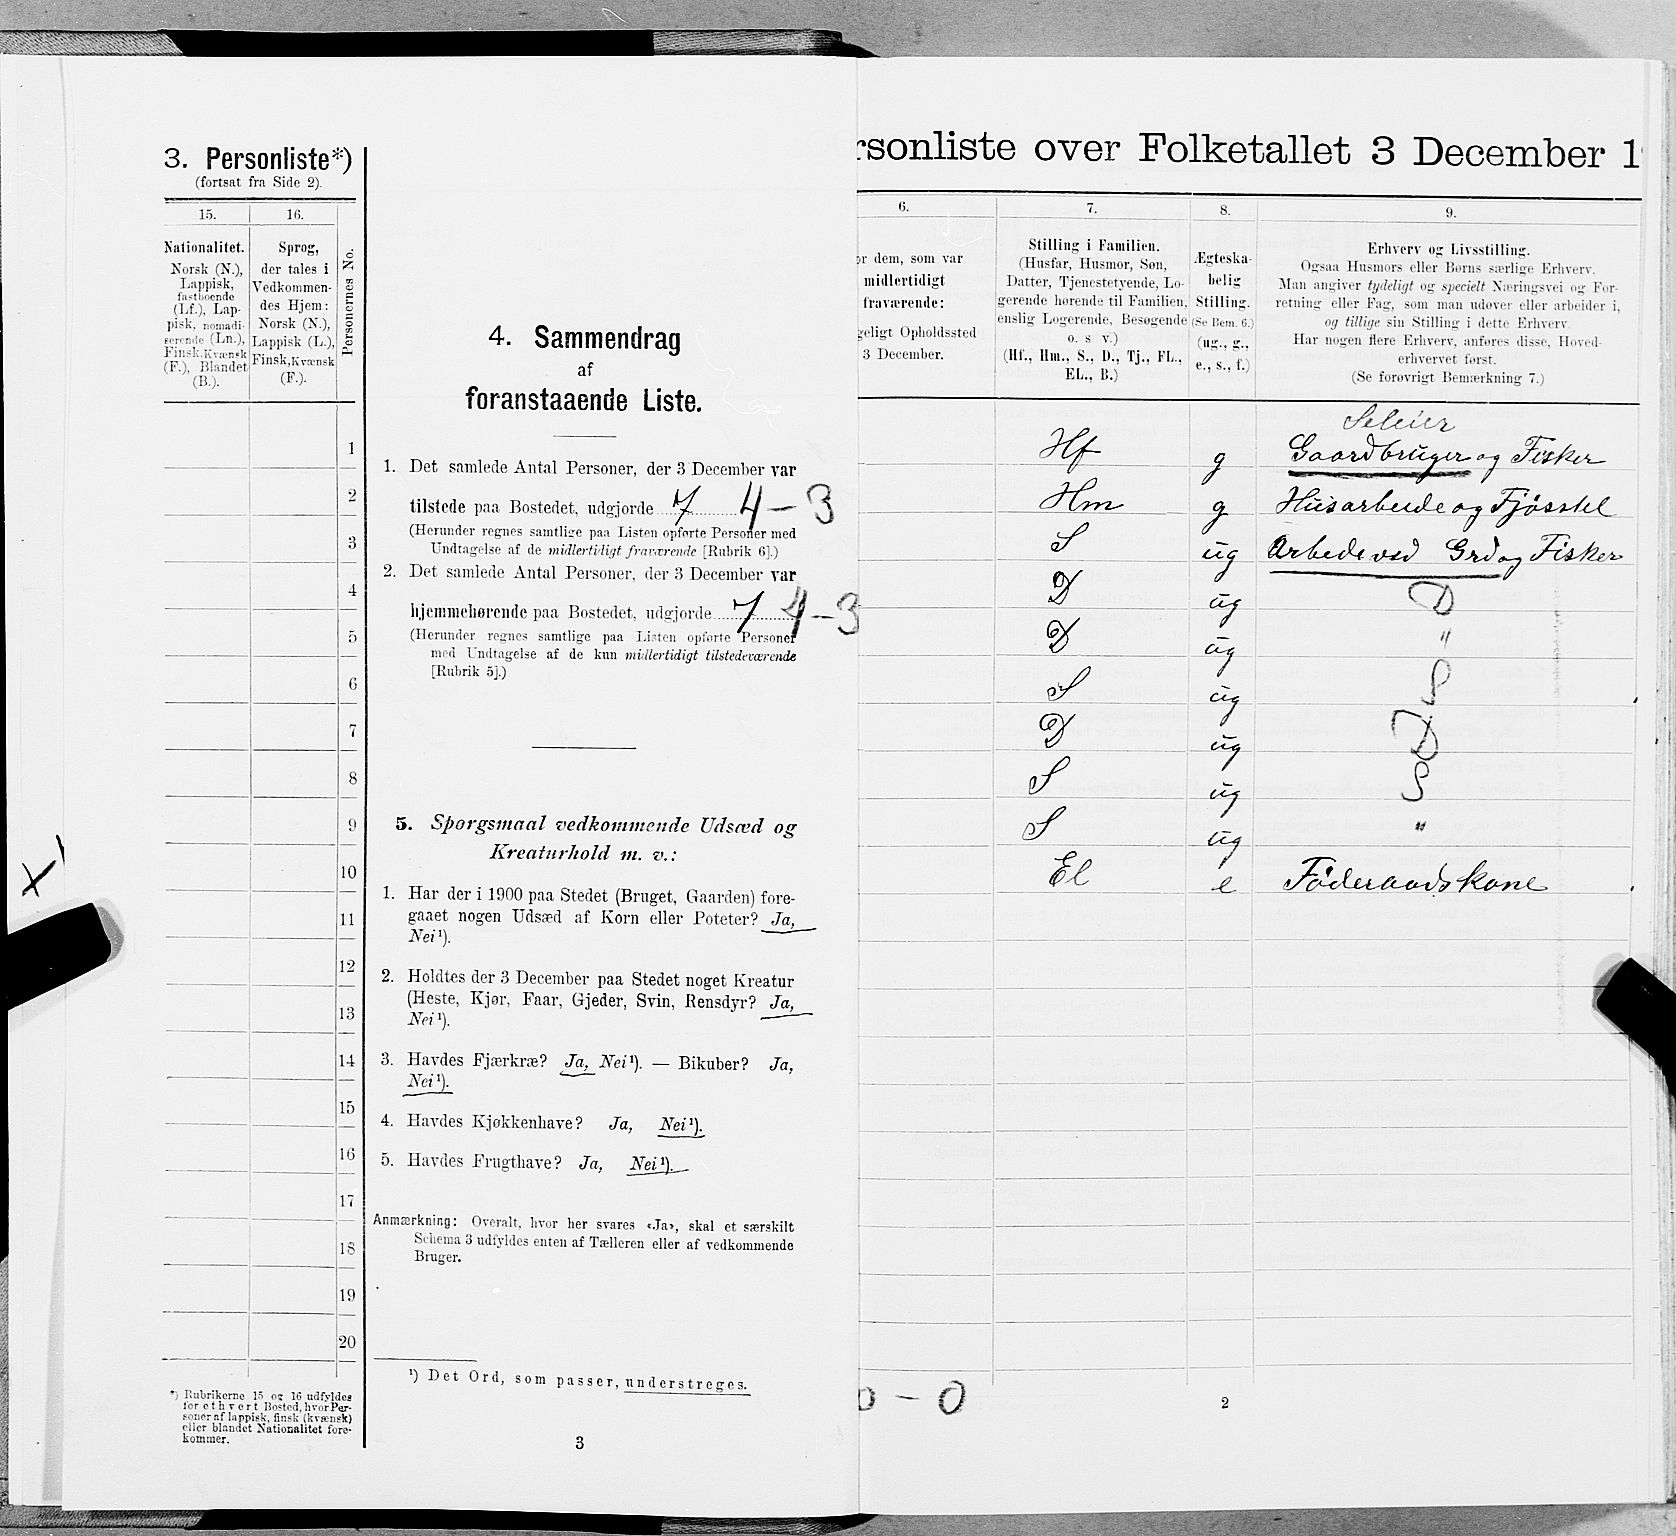 3. Personliste*)
(fortsat fra Side 2).
15.
16.
Personernes No.
Nationalitet.
Norsk (N.),
Lappisk,
fastboende
(Lf.), Lap-
pisk, nomadi-
serende (Ln.),
Finsk, Kvænsk
(F.), Blandet
(B.).
Sprog,
der tales i
Vedkommen-
des Hjem:
Norsk (N.),
Lappisk (L.),
Finsk, Kvænsk
(F.).
1
2
3
4
5
6
7
8
9
10
11
12
13
14
15
16
17
18
19
20
*) Rubrikerne 15 og 16 udfyldes
for ethvert Bosted, hvor Per-
soner af lappisk, finsk (kvænsk)
eller blandet Nationalitet fore-
kommer.
4. Sammendrag
af
foranstaaende Liste.
1. Det samlede Antal Personer, der 3 December var
tilstede paa Bostedet, udgjorde 7 4-3
(Herunder regnes samtlige paa Listen opførte Personer med
Undtagelse af de midlertidigt fraværende [Rubrik 6].)
2. Det samlede Antal Personer, der 3 December var
hjemmehørende paa Bostedet, udgjorde 7 4-3
(Herunder regnes samtlige paa Listen opførte Personer
med Undtagelse af de kun midlertidigt tilstedeværende
[Rubrik 5].)
5. Spørgsmaal vedkommende Udsæd og
Kreaturhold m. v.:
1. Har der i 1900 paa Stedet (Bruget, Gaarden) fore-
gaaet nogen Udsæd af Korn eller Poteter? Ja,
Nei ¹).
2. Holdtes der 3 December paa Stedet noget Kreatur
(Heste, Kjør, Faar, Gjeder, Svin, Rensdyr? Ja,
Nei ¹).
3. Havdes Fjærkræ? Ja, Nei ¹). — Bikuber? Ja,
Nei ¹).
4. Havdes Kjøkkenhave? Ja, Nei ¹).
5. Havdes Frugthave? Ja, Nei ¹).
Anmærkning: Overalt, hvor her svares «Ja», skal et særskilt
Schema 3 udfyldes enten af Tælleren eller af vedkommende
Bruger.
¹) Det Ord, som passer, understreges.
3
rsonliste over Folketallet 3 December 1
6.
7.
8.
9.
or dem, som var
midlertidigt
fraværende:
geligt Opholdssted
3 December.
Stilling i Familien.
(Husfar, Husmor, Søn,
Datter, Tjenestetyende, Lo-
gerende hørende til Familien,
enslig Logerende, Besøgende
o. s v.)
(Hf., Hm., S., D., Tj., FL.,
EL., B.)
Ægteska-
belig
Stilling.
(Se Bem. 6.)
(ug., g.,
e., s., f.)
Erhverv og Livsstilling.
Ogsaa Husmors eller Børns særlige Erhverv.
Man angiver tydeligt og specielt Næringsvei og For-
retning eller Fag, som man udøver eller arbeider i,
og tillige sin Stilling i dette Erhverv.
Har nogen flere Erhverv, anføres disse, Hoved-
erhvervet først.
(Se forøvrigt Bemærkning 7.)
Seleier
Hf g Gaardbruger og Fisker
Hm g Husarbeide og Fjøsstel
S ug Arbede ved Grd og Fisker
D ug D
D ug "
S ug S
D ug D
S ug S
S ug "
El e Føderaadskone
0 - 0
2